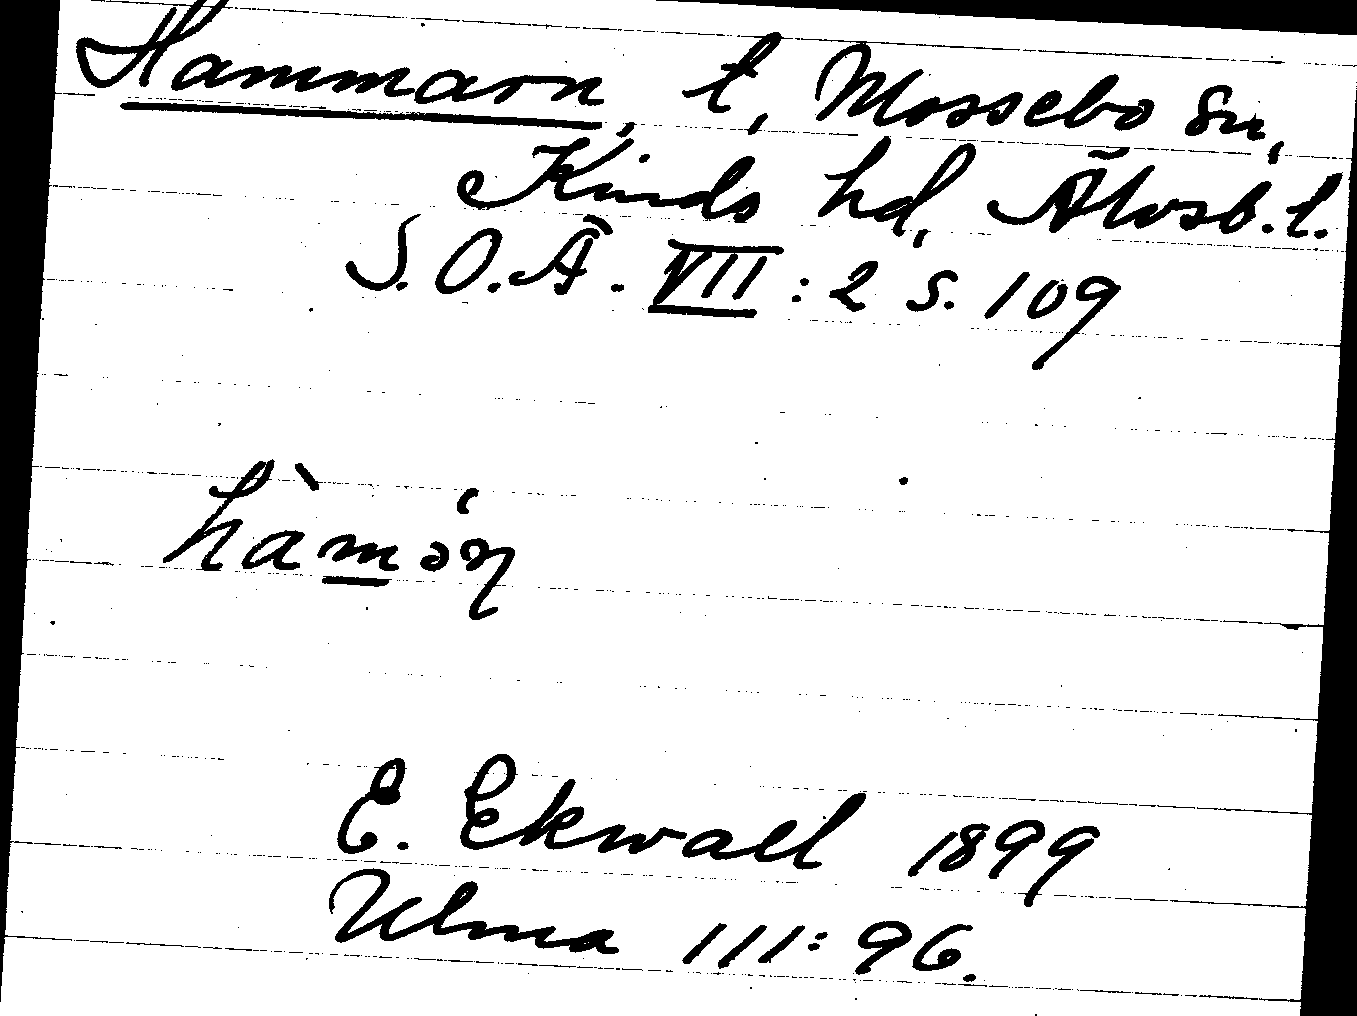 Hammarn, t, Mossebo sn,
Kinds hd, Älvsb. l.
S.O.Ä. VII : 2 s. 109
hàmən
E. Ekwall 1899
Ulma 111:96.